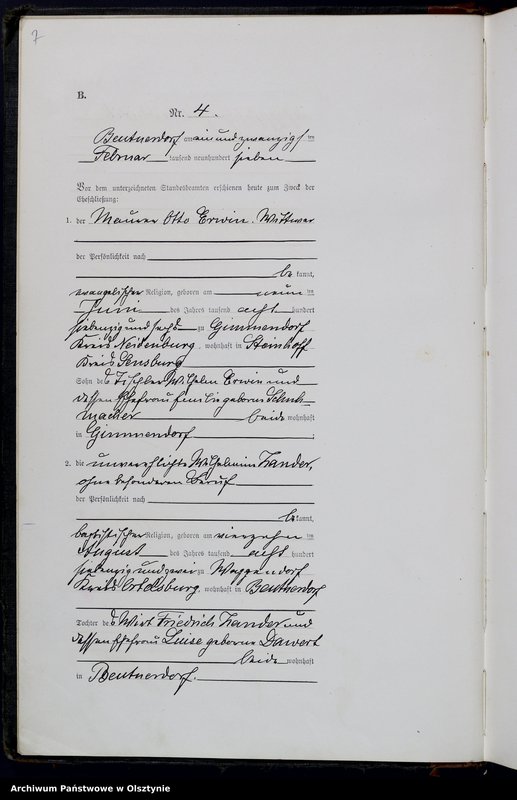 7
B.
Nr. 4.
Beutnerdorf am ein und zwanzigs ten
Februar tausend neunhundert sieben
Vor dem unterzeichneten Standesbeamten erschienen heute zum Zweck der
Eheschließung:
1. der Maurer Otto Erwin. Wittwer
der Persönlichkeit nach
be kannt,
evangelischer Religion, geboren am neun ten
Juni des Jahres tausend acht hundert
siebenzig und sechs zu Gimmendorf
Kreis Neidenburg, wohnhaft in Steinhoff
Kreis Sensburg
Sohn des Tischler Wilhelm Erwin und
dessen Ehefrau geborne Schuh-
macher beide wohnhaft
in Gimmendorf.
2. die unverehlichte Wilhelmine Zander,
ohne besonderen Beruf
der Persönlichkeit nach
be kannt,
baptistischer Religion, geboren am vierzehn ten
August des Jahres tausend acht hundert
siebenzig und zwei zu Wappendorf
Kreis Ortelsburg, wohnhaft in Beutnerdorf
Tochter des Wirt Friedrich Zander und
dessen Ehefrau Luise geborne Dawert
beide wohnhaft
in Beutnerdorf.
Archiwum Państwowe w Olsztynie